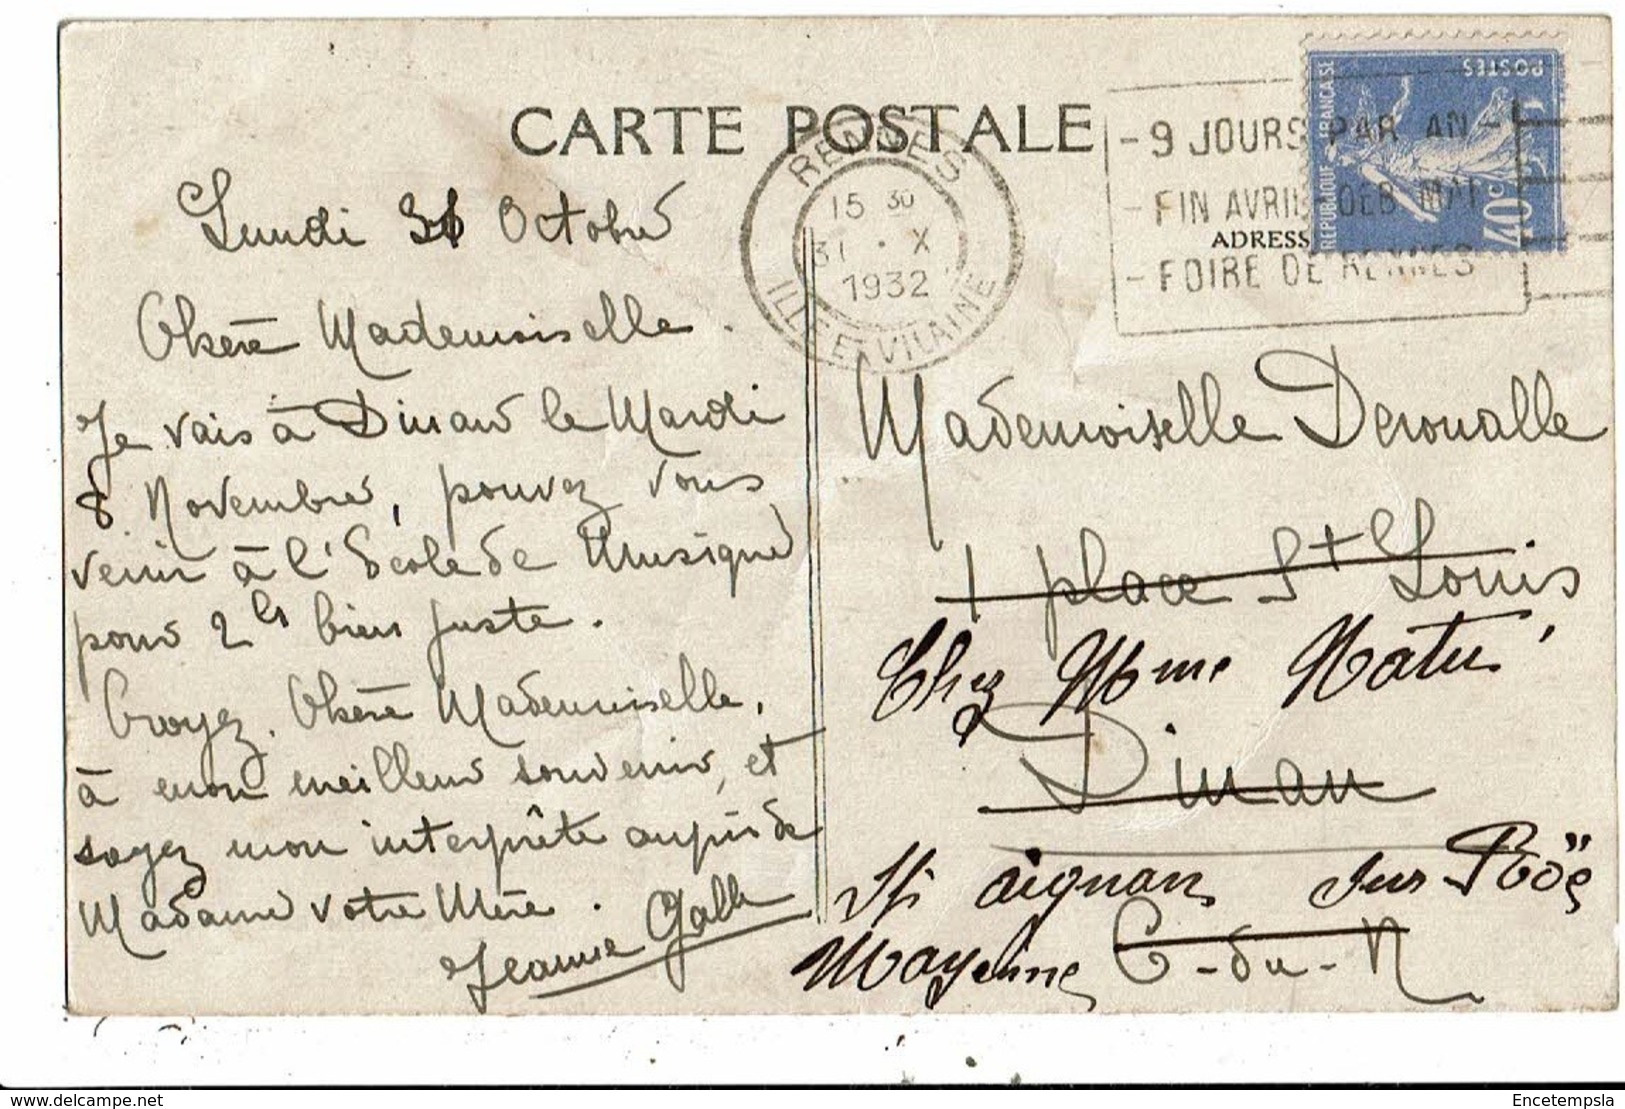 CARTE POSTALE
RENNES
15 30
31 . X
1932
ILLE-ET-VILAINE
- 9 JOURS PAR AN -
- FIN AVRIL DEB MAI
- FOIRE DE RENNES
REPUBLIQUE FRANCAISE
POSTES
40c
ADRESS
Lundi 31 Octobre
Chère Mademoiselle.
Je vais à Dinard le Mardi
8 Novembre, pouvez vous
venir à l'Ecole de Musique
pour 2 hs bien juste.
Croyez, Chère Mademoiselle,
à mon meilleur souvenir, et
soyez mon interprète auprès de
Madame votre Mère.
Jeanne Galle
Mademoiselle Deroualle
1 place St Louis
Chez Mme
Dinan
St aignan sur Röë
Mayenne C-du-N
delcampe.net
Encetempsla